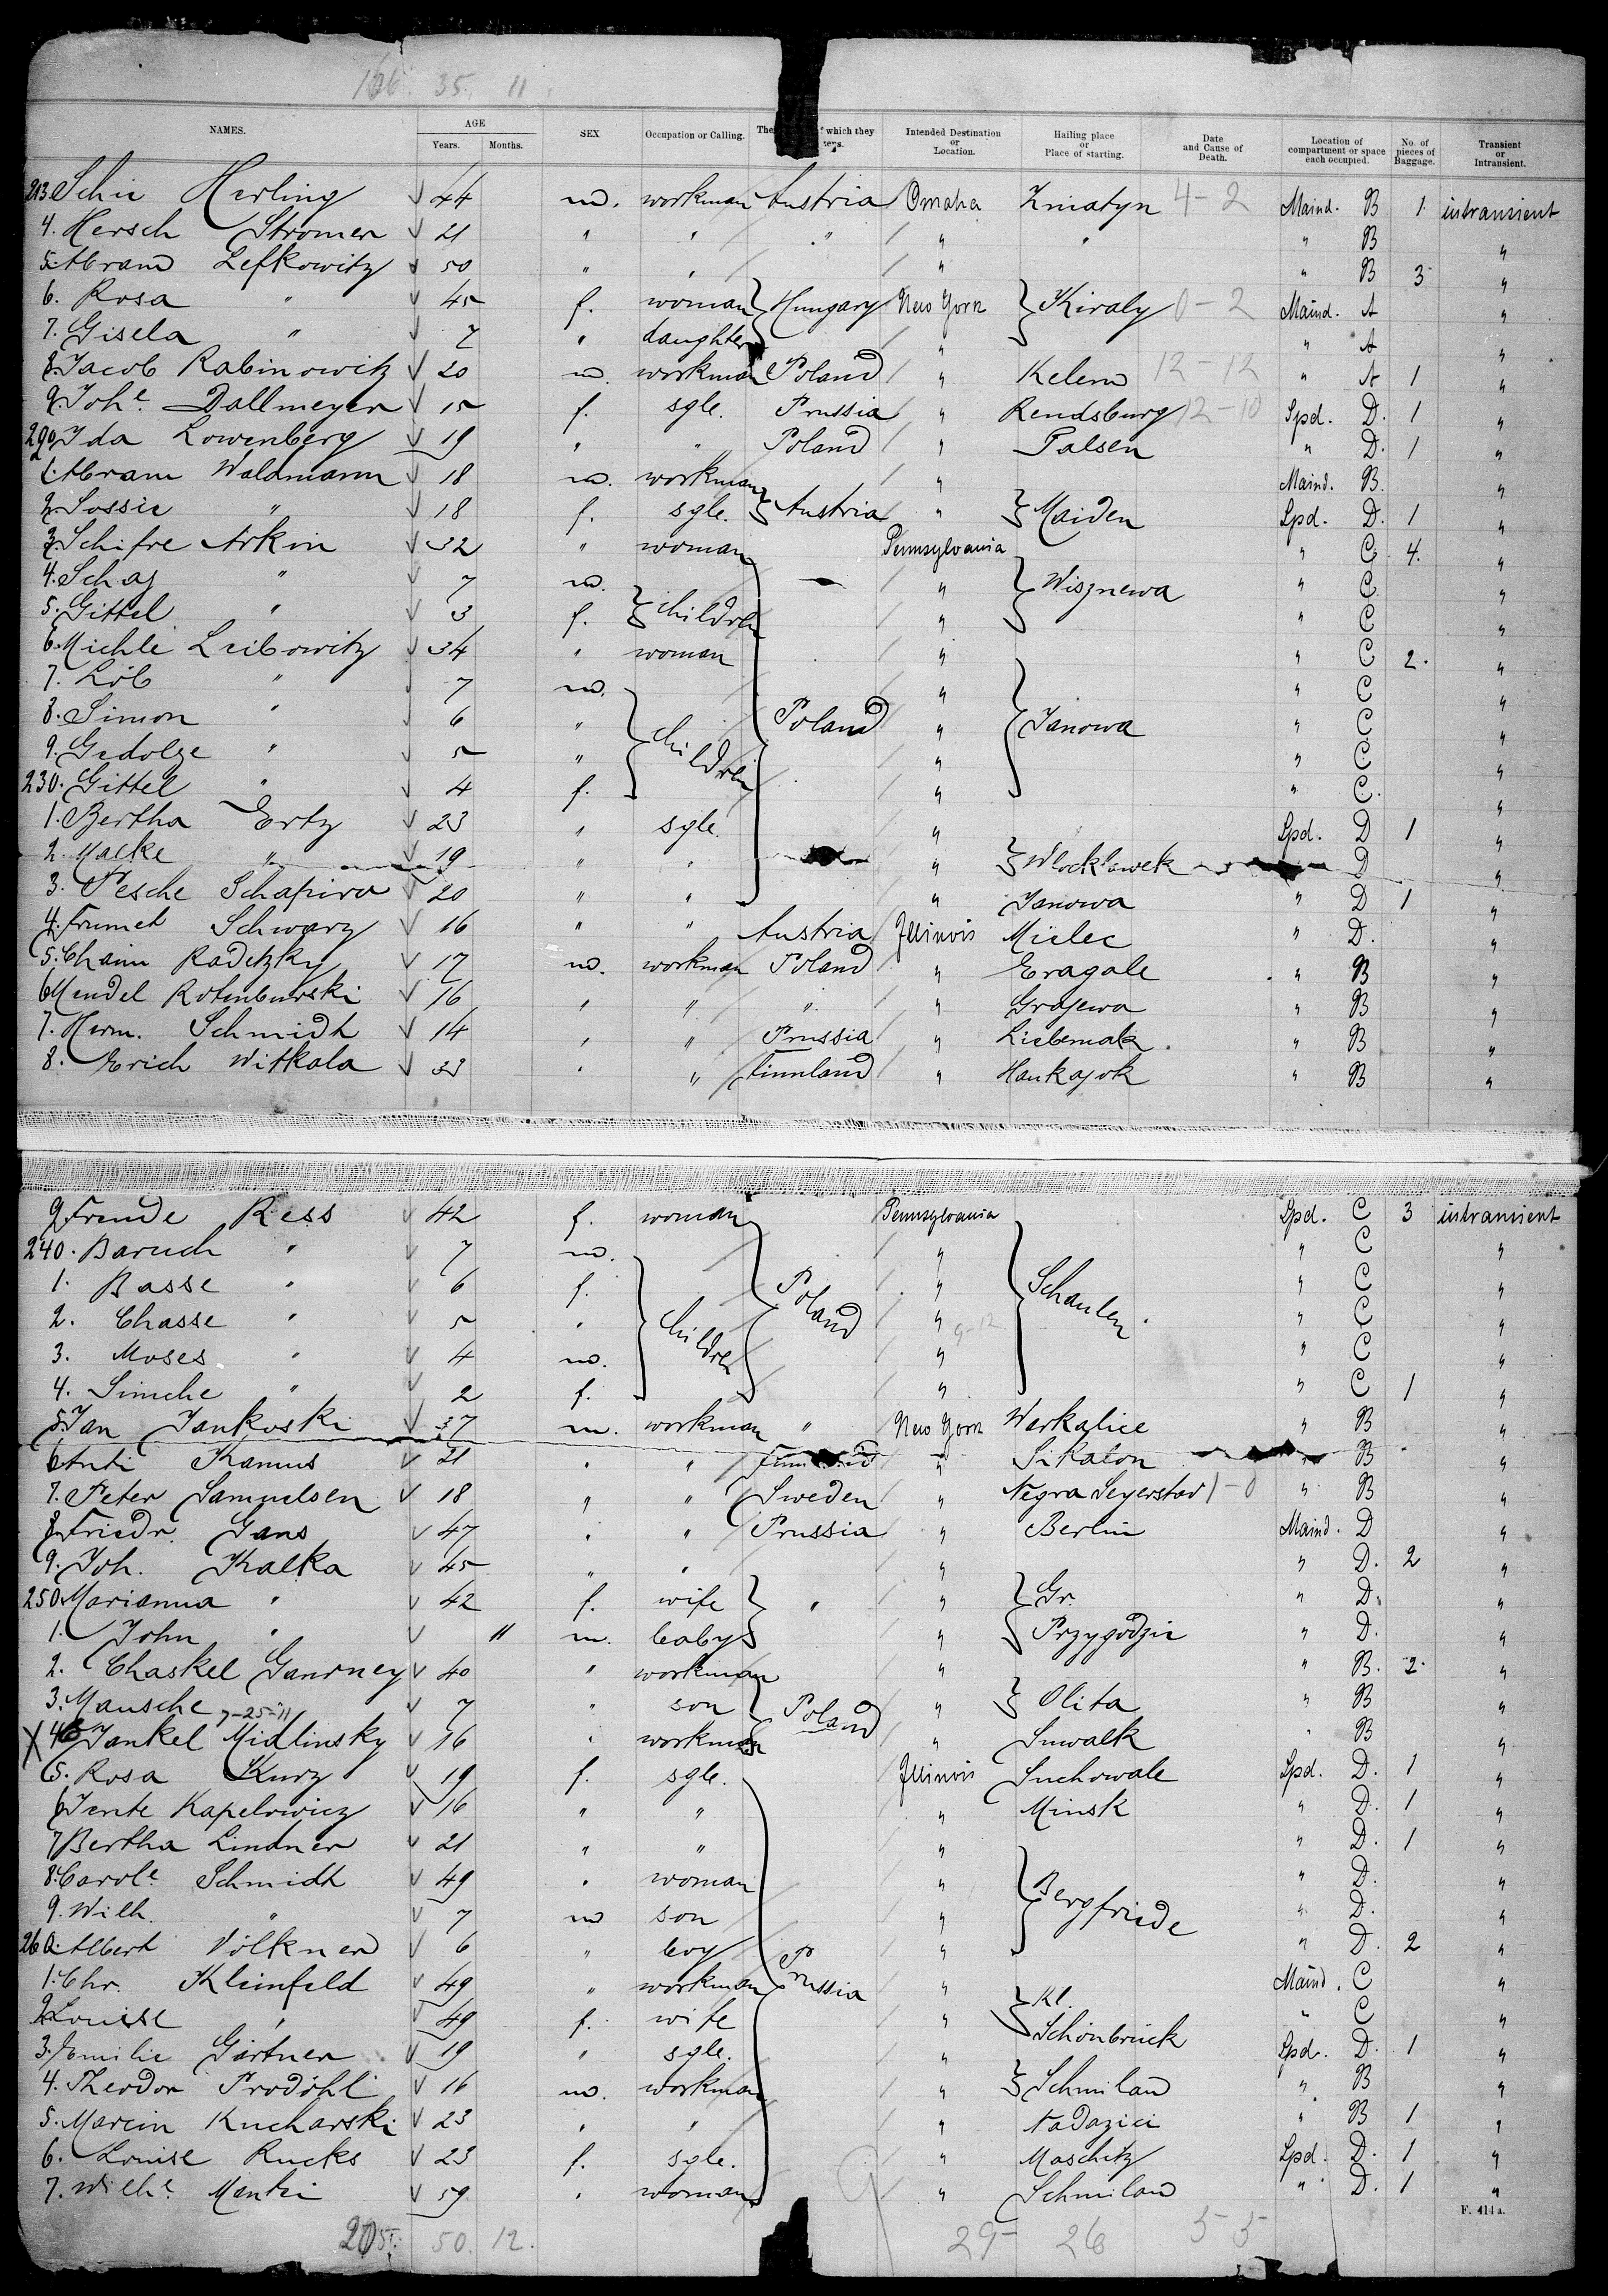 166. 35. 11.
NAMES. AGE Years. Months. SEX Occupation or Calling. The which they Intended Destination or Location. Hailing place or Place of starting. Date and Cause of Death. Location of compartment or space each occupied. No. of pieces of Baggage. Transient or Intransient.
213. Schie Herling √ 44 m. workman Austria Omaha Zmatyn 4-2 Maind. B 1. intransient
4. Hersch Stromer √ 21 " " " " " " B "
5. Abram Lefkowitz √ 50 " " " " B 3 "
6. Rosa " √ 45 f. woman Hungary New York Kiraly 0-2 Maind. A "
7. Gisela " √ 7 " daughter " " A "
8. Jacob Rabinowitz √ 20 m. workman Poland " Kelem 12-12 " A 1 "
9. Johe. Dallmeyer √ 15 f. sgle. Prussia " Rendsburg 12-10 Spd. D. 1 "
290 Ida Lowenberg √ 19 " " Poland " Talsen " D. 1 "
1. Abram Waldmann √ 18 m. workman " Maind. B. "
2. Sossie " √ 18 f. sgle. Austria " Maiden Spd. D. 1 "
3. Schifre Arkin √ 32 " woman Pennsylvania " C. 4. "
4. Schaj " √ 7 m. " Wisznewa " C "
5. Gittel " √ 3 f. children " " C "
6. Michle Leibowitz √ 34 " woman " " C 2. "
7. Löb " √ 7 m. " " C "
8. Simon " √ 6 " Poland " Janowa " C "
9. Gedolge " √ 5 " children " " C "
230. Gittel " √ 4 f. " " C. "
1. Bertha Ertz √ 23 " sgle. " Spd. D 1 "
2. Macke " √ 19 " " " Wlocklawek D "
3. Pesche Schapiro √ 20 " " " Janowa " D 1 "
4. Frumet Schwarz √ 16 " " Austria Illinois Mielec " D. "
5. Chaim Radetzky √ 17 m. workman Poland " Eragole " B "
6 Mendel Rotenburski √ 16 " " " " Grajewa " B "
7. Herm. Schmidt √ 14 " " Prussia " Liebemak. " B "
8. Erich Witkala √ 33 " " Finnland " Haukajok " B "
9. Freude Ress √ 42 f. woman Pennsylvania Spd. C 3 intransient
240. Baruch " √ 7 m. " " C "
1. Basse " √ 6 f. Poland " Schaulen " C "
2. Chasse " √ 5 " children " 9-12 " C "
3. Moses " √ 4 m. " " C "
4. Simche " √ 2 f. " " C 1 "
5. Jan Jankoski √ 37 m. workman " New York Warkalice " B "
6 Anti Kamus √ 21 " " " Sikalon " B "
7. Peter Samuelsen √ 18 " " Sweden " Negra Seyerstad 1-0 " B "
8. Friedr. Gans √ 47 " " Prussia " Berlin Maind. D "
9. Joh. Kalka √ 45 " " " " D. 2 "
250. Marianna " √ 42 f. wife " " Gr. " D. "
1. John " √ 11 m. baby " Przygodzie " D. "
2. Chaskel Gawrney √ 40 " workman " " B. 2. "
3. Mausche 7-25-11 √ 7 " son Poland " Olita " B "
X 4. Jankel Midlinsky √ 16 " workman " Suwalk " B "
5. Rosa Kurz √ 19 f. sgle. Illinois Suchowale Spd. D. 1 "
6 Jente Kapelowicz √ 16 " " " Minsk " D. 1 "
7 Bertha Lindner √ 21 " " " " D. 1 "
8. Carole. Schmidt √ 49 " woman " " D. "
9. Wilh. " √ 7 m son " Bergfriede " D. "
260. Albert Völkner √ 6 " boy Prussia " " D. 2 "
1. Chr. Kleinfeld √ 49 " workman " Kl. Maind. C "
2. Louise " √ 49 f. wife " Schönbrück " C "
3. Emilie Gärtner √ 19 " sgle. " Spd. D. 1 "
4. Theodor Prodöhl √ 16 m. workman " Schmilau " B "
5. Marcin Kucharski √ 23 " " " Nadazici " B 1 "
6. Louise Rucks √ 23 f. sgle. " Maschitz Spd. D. 1 "
7. Wilhe. Mantei √ 59 " woman " Schmilau " D. 1 "
F. 414a.
50. 12. 29- 26 5-5